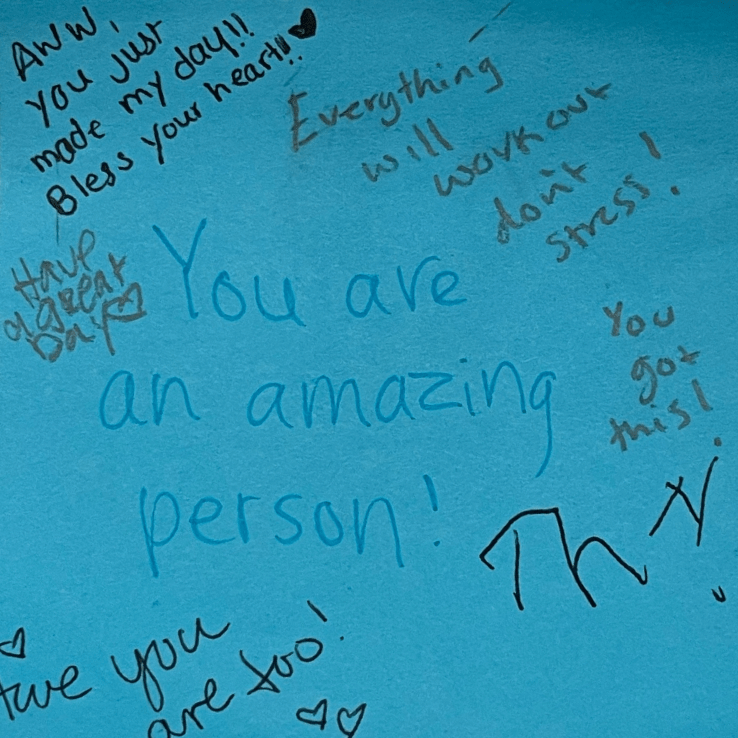 AWW,
you just
made my day!!
Bless your heart!!
Everything
will
work out
don't
stress!
Have
a great
Day
You are
an amazing
person!
You
got
this!
you
are too!